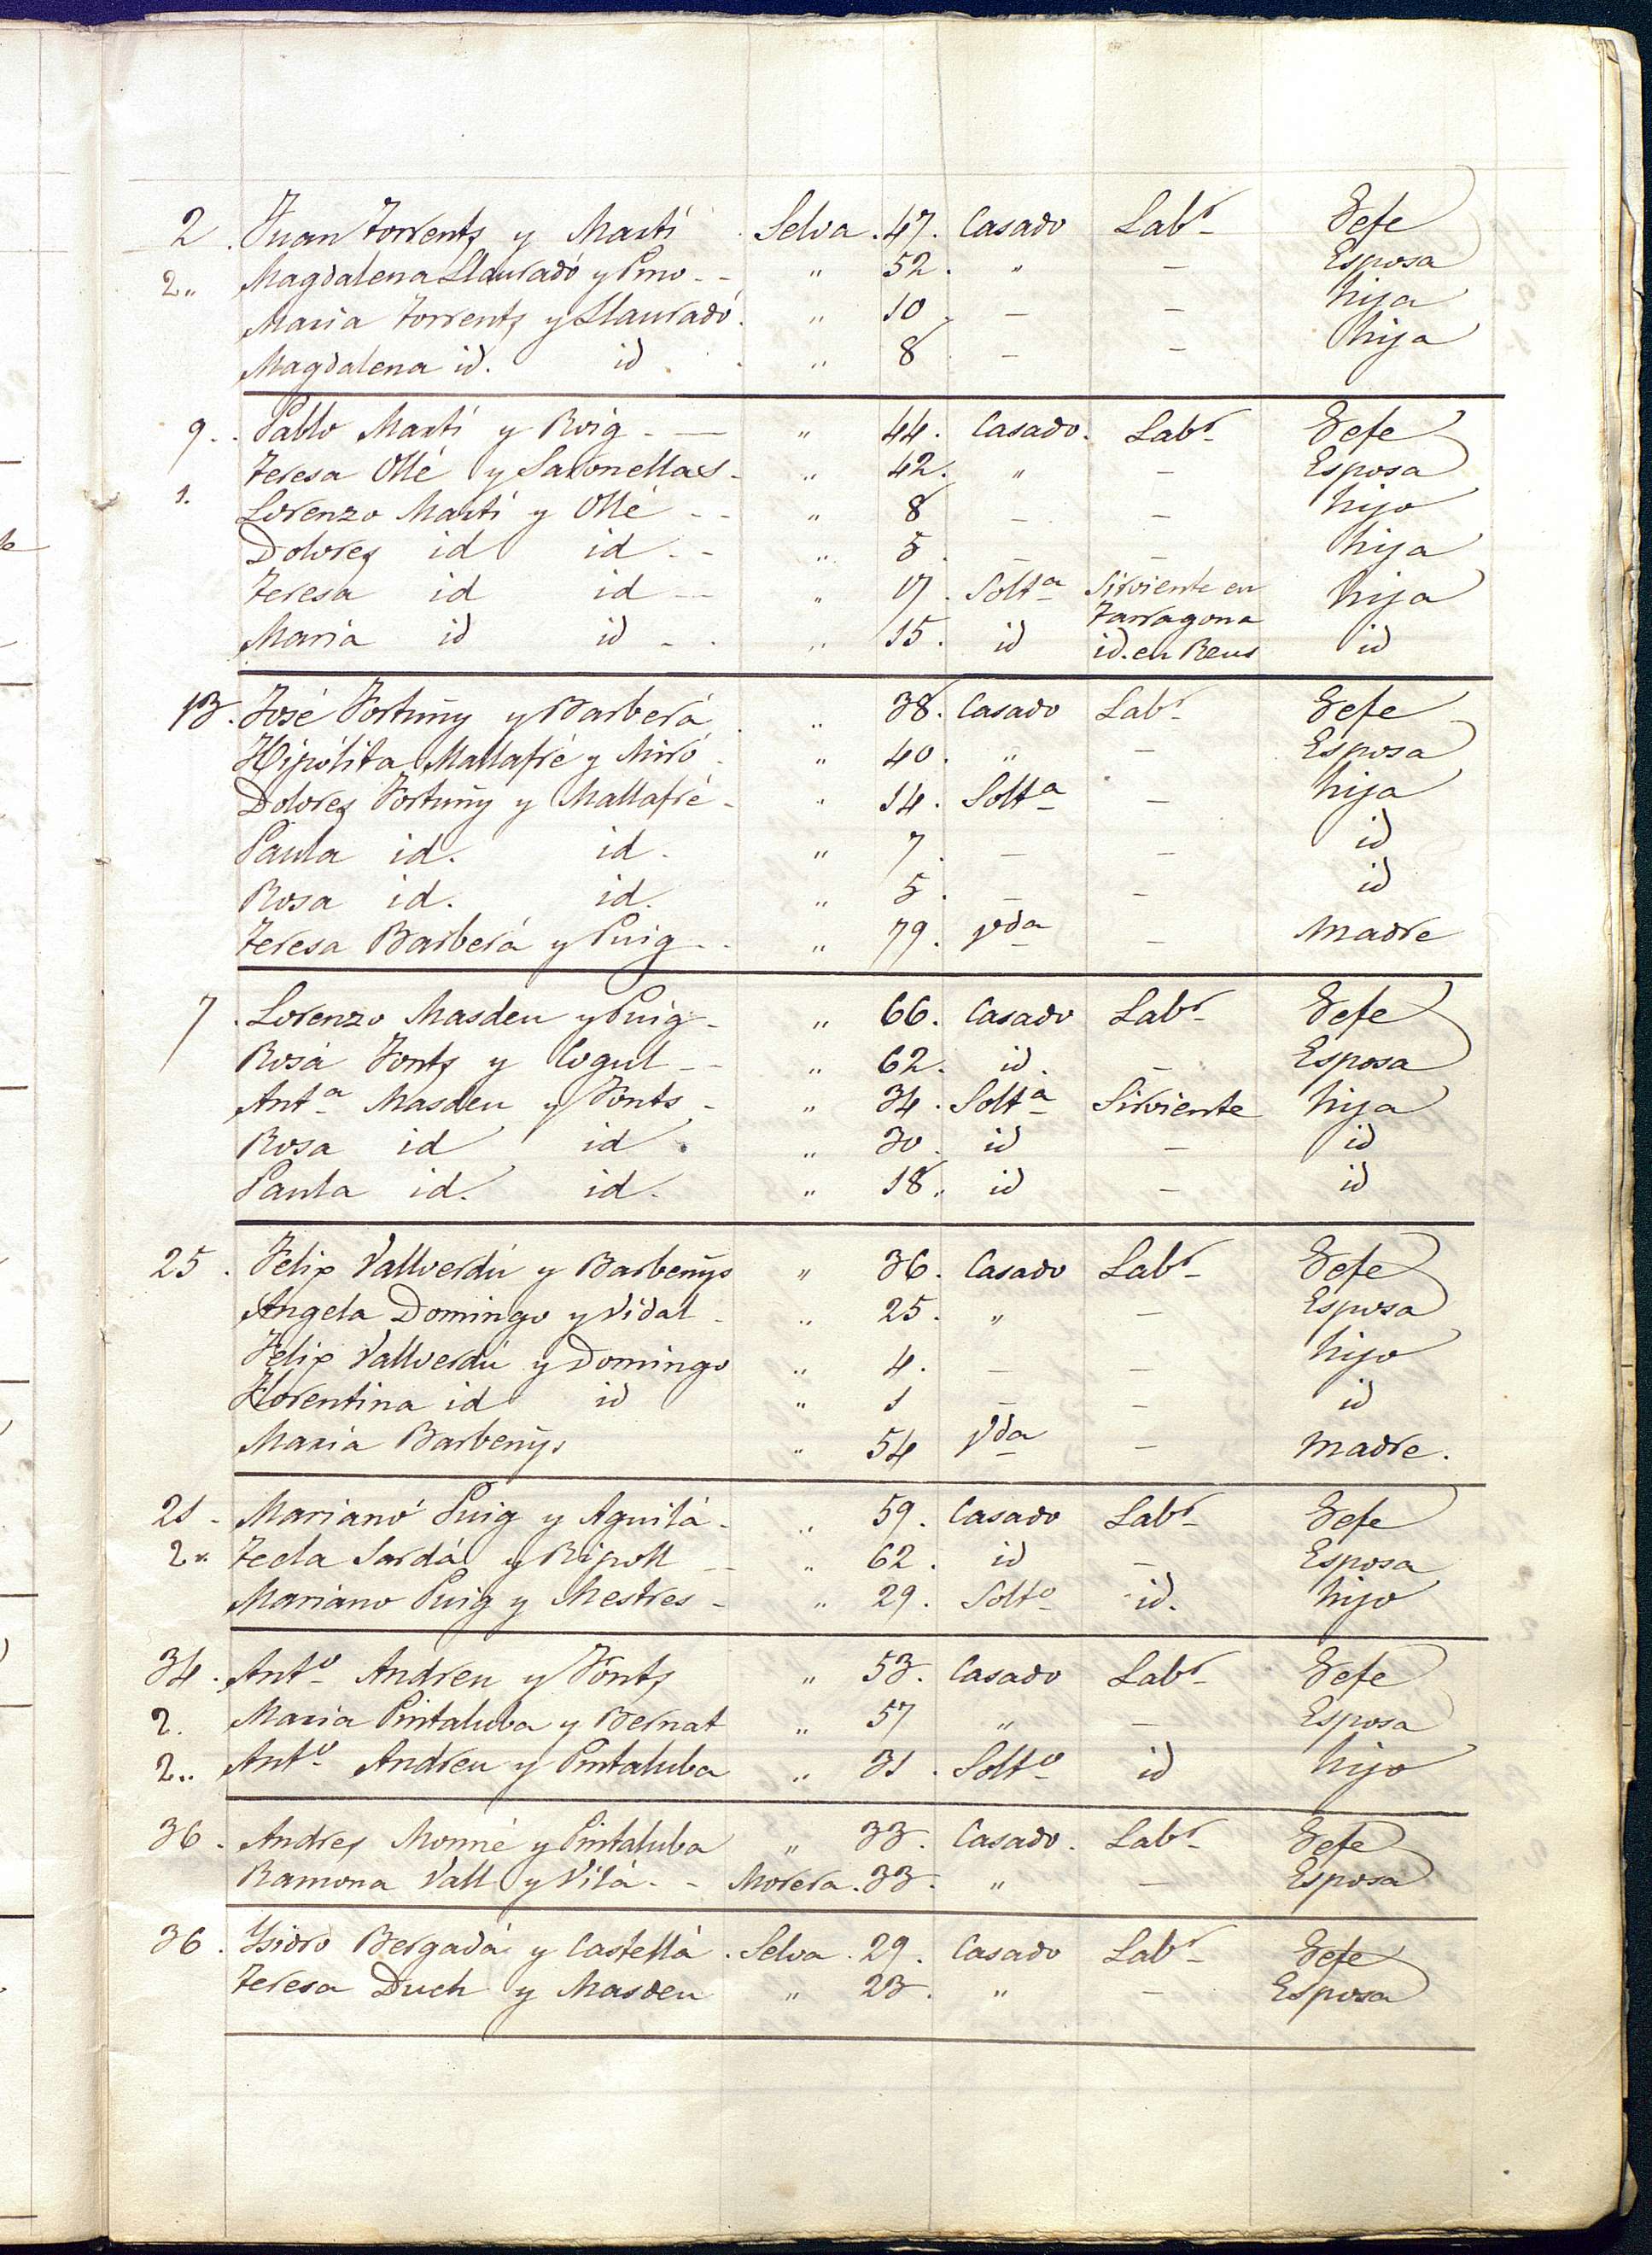 2 . Juan Torrents y Martí . Selva . 47. Casado Labr Gefe
2 „ Magdalena Llauradó y Pino - - „ 52. „ — Esposa
Maria Torrents y Llauradó. „ 10 . — — hija
Magdalena id. id . „ 8 — — hija
9 . . Pablo Martí y Roig - — „ 44. Casado. Labr Gefe
Teresa Ollé y Saronellas - „ 42. „ — Esposa
1. Lorenzo Martí y Ollé - - „ 8 — — hijo
Dolores id id - - „ 5 . — — hija
Teresa id id - - „ 17. Solta Sirviente en Tarragona hija
Maria id id - . „ 15. id id. en Reus id
13. José Fortuny y Barberá „ 38. Casado Labr Gefe
Hipólita Mallafré y Miró . „ 40. „ — Esposa
Dolores Fortuny y Mallafré - „ 14. Solta — hija
Paula id. id. „ 7. — — id
Rosa id. id. „ 5. — — id
Teresa Barberá y Puig - - „ 79. Vda — Madre
7 . Lorenzo Masdeu y Puig - „ 66. Casado Labr Gefe
Rosa Fonts y Cogul - - „ 62. id. — Esposa
Anta Masdeu y Fonts - „ 34. Solta Sirviente hija
Rosa id id . „ 30. id — id
Paula id. id. „ 18. id — id
25 . Felix Vallverdú y Barbenys „ 36. Casado Labr Gefe
Angela Domingo y Vidal - „ 25. „ — Esposa
Felix Vallverdú y Domingo „ 4. — — hijo
Florentina id id „ 1 — — id
Maria Barbenys „ 54 Vda — Madre.
21 - Mariano Puig y Aguilá - „ 59. Casado Labr Gefe
2 „ Tecla Sardá y Ripoll - - „ 62. id — Esposa
Mariano Puig y Mestres - „ 29. Solto id. hijo
34 . Anto Andreu y Fonts „ 53. Casado Labr Gefe
2. Maria Pintaluba y Bernat „ 57 „ — Esposa
2 .. Anto Andreu y Pintaluba „ 31 . Solto id hijo
36 . Andres Monné y Pintaluba „ 33. Casado. Labr Gefe
Ramona Vall y Vilá - - Morera . 33. „ — Esposa
36 . Ysidro Bergadá y Castellá . Selva . 29. Casado Labr Gefe
Teresa Duch y Masdeu „ 23. „ — Esposa